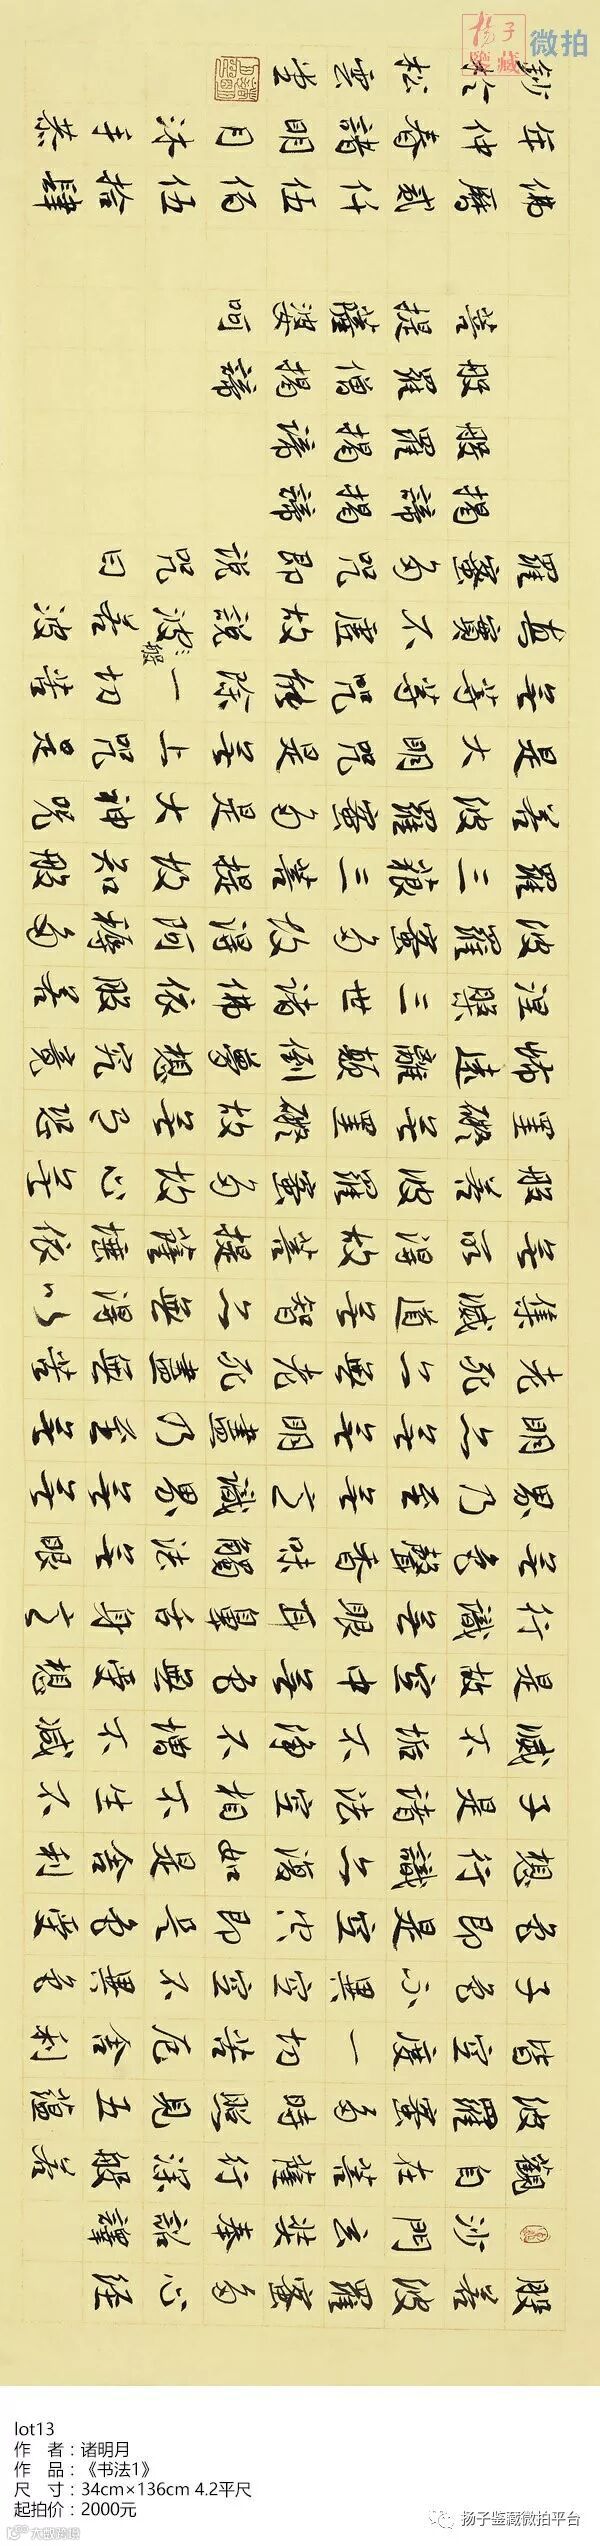 般若波羅蜜多心经
沙門玄奘奉詔譯
觀自在菩薩行深般若
波羅蜜多時照見五蕴
皆空度一切苦厄舍利
子色不異空空不異色
色即是空空即是色受
想行識亦復如是舍利
子是諸法空相不生不
滅不垢不淨不增不減
是故空中無色無受想
行識無眼耳鼻舌身意
無色聲香味觸法無眼
界乃至無意識界無無
明亦無無明盡乃至無
老死亦無老死盡無苦
集滅道無智亦無得以
無所得故菩提薩埵依
般若波羅蜜多故心無
罣礙無罣礙故無有恐
怖遠離顛倒夢想究竟
涅槃三世諸佛依般若
波羅蜜多故得阿耨多
羅三藐三菩提故知般
若波羅蜜多是大神咒
是大明咒是無上咒是
無等等咒能除一切苦
真實不虛故說波般若波
羅蜜多咒即說咒曰
揭諦揭諦
般羅揭諦
般羅僧揭諦
菩提薩婆呵
佛曆貳仟伍佰伍拾肆
年仲春諸明月沐手恭
鈔於松雲堂
扬子鑒藏微拍
lot13
作 者:诸明月
作 品:《书法1》
尺 寸:34cm×136cm 4.2平尺
起拍价:2000元
扬子鉴藏微拍平台
大数跨境